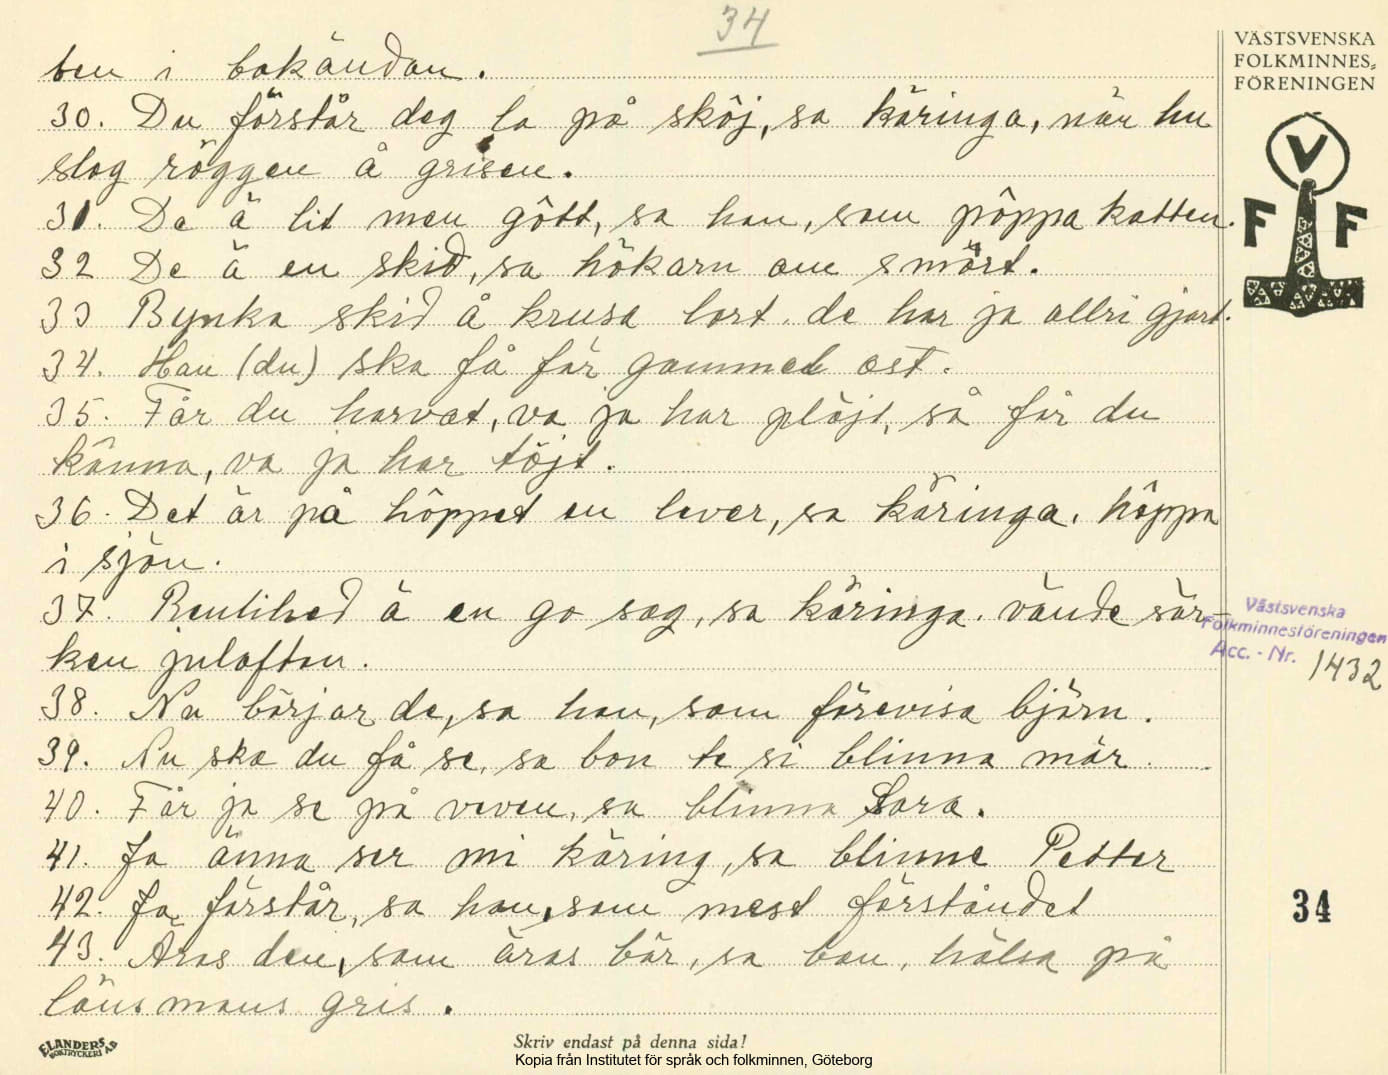 34
ben i bakändan.
30. Du förstår deg la på sköj, sa käringa, når hu
slog röggen å grisen.
31. De ä lit men gôtt, sa han, som pôppa katten.
32 De ä en skid, sa hökarn om smöret.
33 Bynka skid å krusa lort. de har ja allri gjort.
34. Han (du) ska få får gammel ost.
35. Får du harvat, va ja har plöjt, så får du
känna, va ja har töjt.
36. Det är på hôppet en lever, sa käringa. hôppa
i sjön.
37. Renlihed ä en go sag, sa käringa. vände sär-
ken julafton.
38. Nu börjar de, sa han, som förevisa björn.
39. Nu ska du få se, sa bon te si blinna mär.
40. Får ja se på veven, sa blinna Sara.
41. Ja änna ser mi käring, sa blinne Petter
42. Ja förstår, sa han, som mest förståndet
43. Äras den, som äras bör, sa bon, hälsa på
länsmans gris.
VÄSTSVENSKA
FOLKMINNES-
FÖRENINGEN
V
F F
Västsvenska
Folkminnesföreningen
Acc. - Nr. 1432
34
ELANDERS
BOKTRYCKERI AB
Skriv endast på denna sida!
Kopia från Institutet för språk och folkminnen, Göteborg